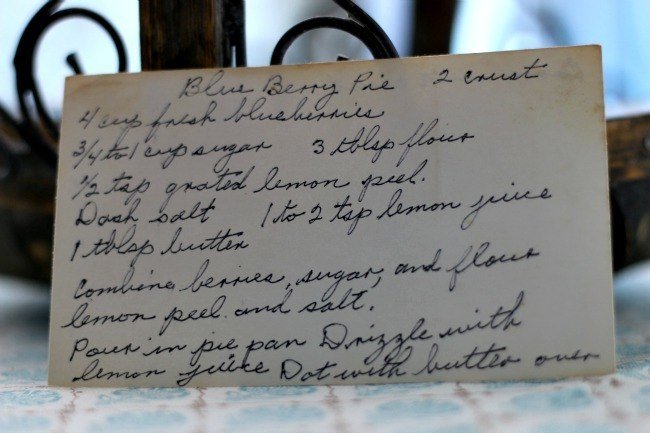 Blue Berry Pie 2 crust
4 cup fresh blueberries
3/4 to 1 cup sugar 3 tblsp flour
1/2 tsp grated lemon peel.
Dash salt 1 to 2 tsp lemon juice
1 tblsp butter
Combine berries, sugar, and flour
lemon peel and salt.
Pour in pie pan Drizzle with
lemon juice Dot with butter over